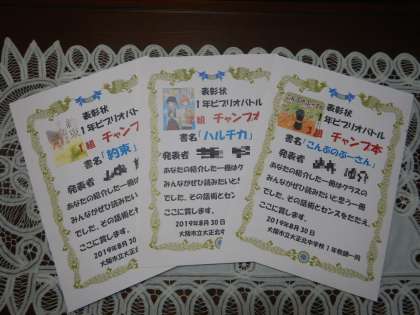 表彰状
1年ビブリオバトル
組 チャンプ
書名「約束
発表者
あなたの紹介した一冊は
みんながぜひ読みたいと
でした。その話術とセ
ここに賞します。
2019年8月30
大阪市立大正北中
表彰状
1年ビブリオバトル
組 チャンプオ
書名「ハルチカ」
発表者
あなたの紹介した一冊はク
みんながぜひ読みたいと!
でした。その話術とセン
ここに賞します。
2019年8月30日
大阪市立大正北中
表彰状
1年ビブリオバトル
組 チャンプ本
書名「こんぶのぶーさん」
発表者
あなたの紹介した一冊はクラスの
みんながぜひ読みたいと思う一冊
でした。その話術とセンスをたたえ、
ここに賞します。
2019年8月30日
大阪市立大正北中学校1年教師一同